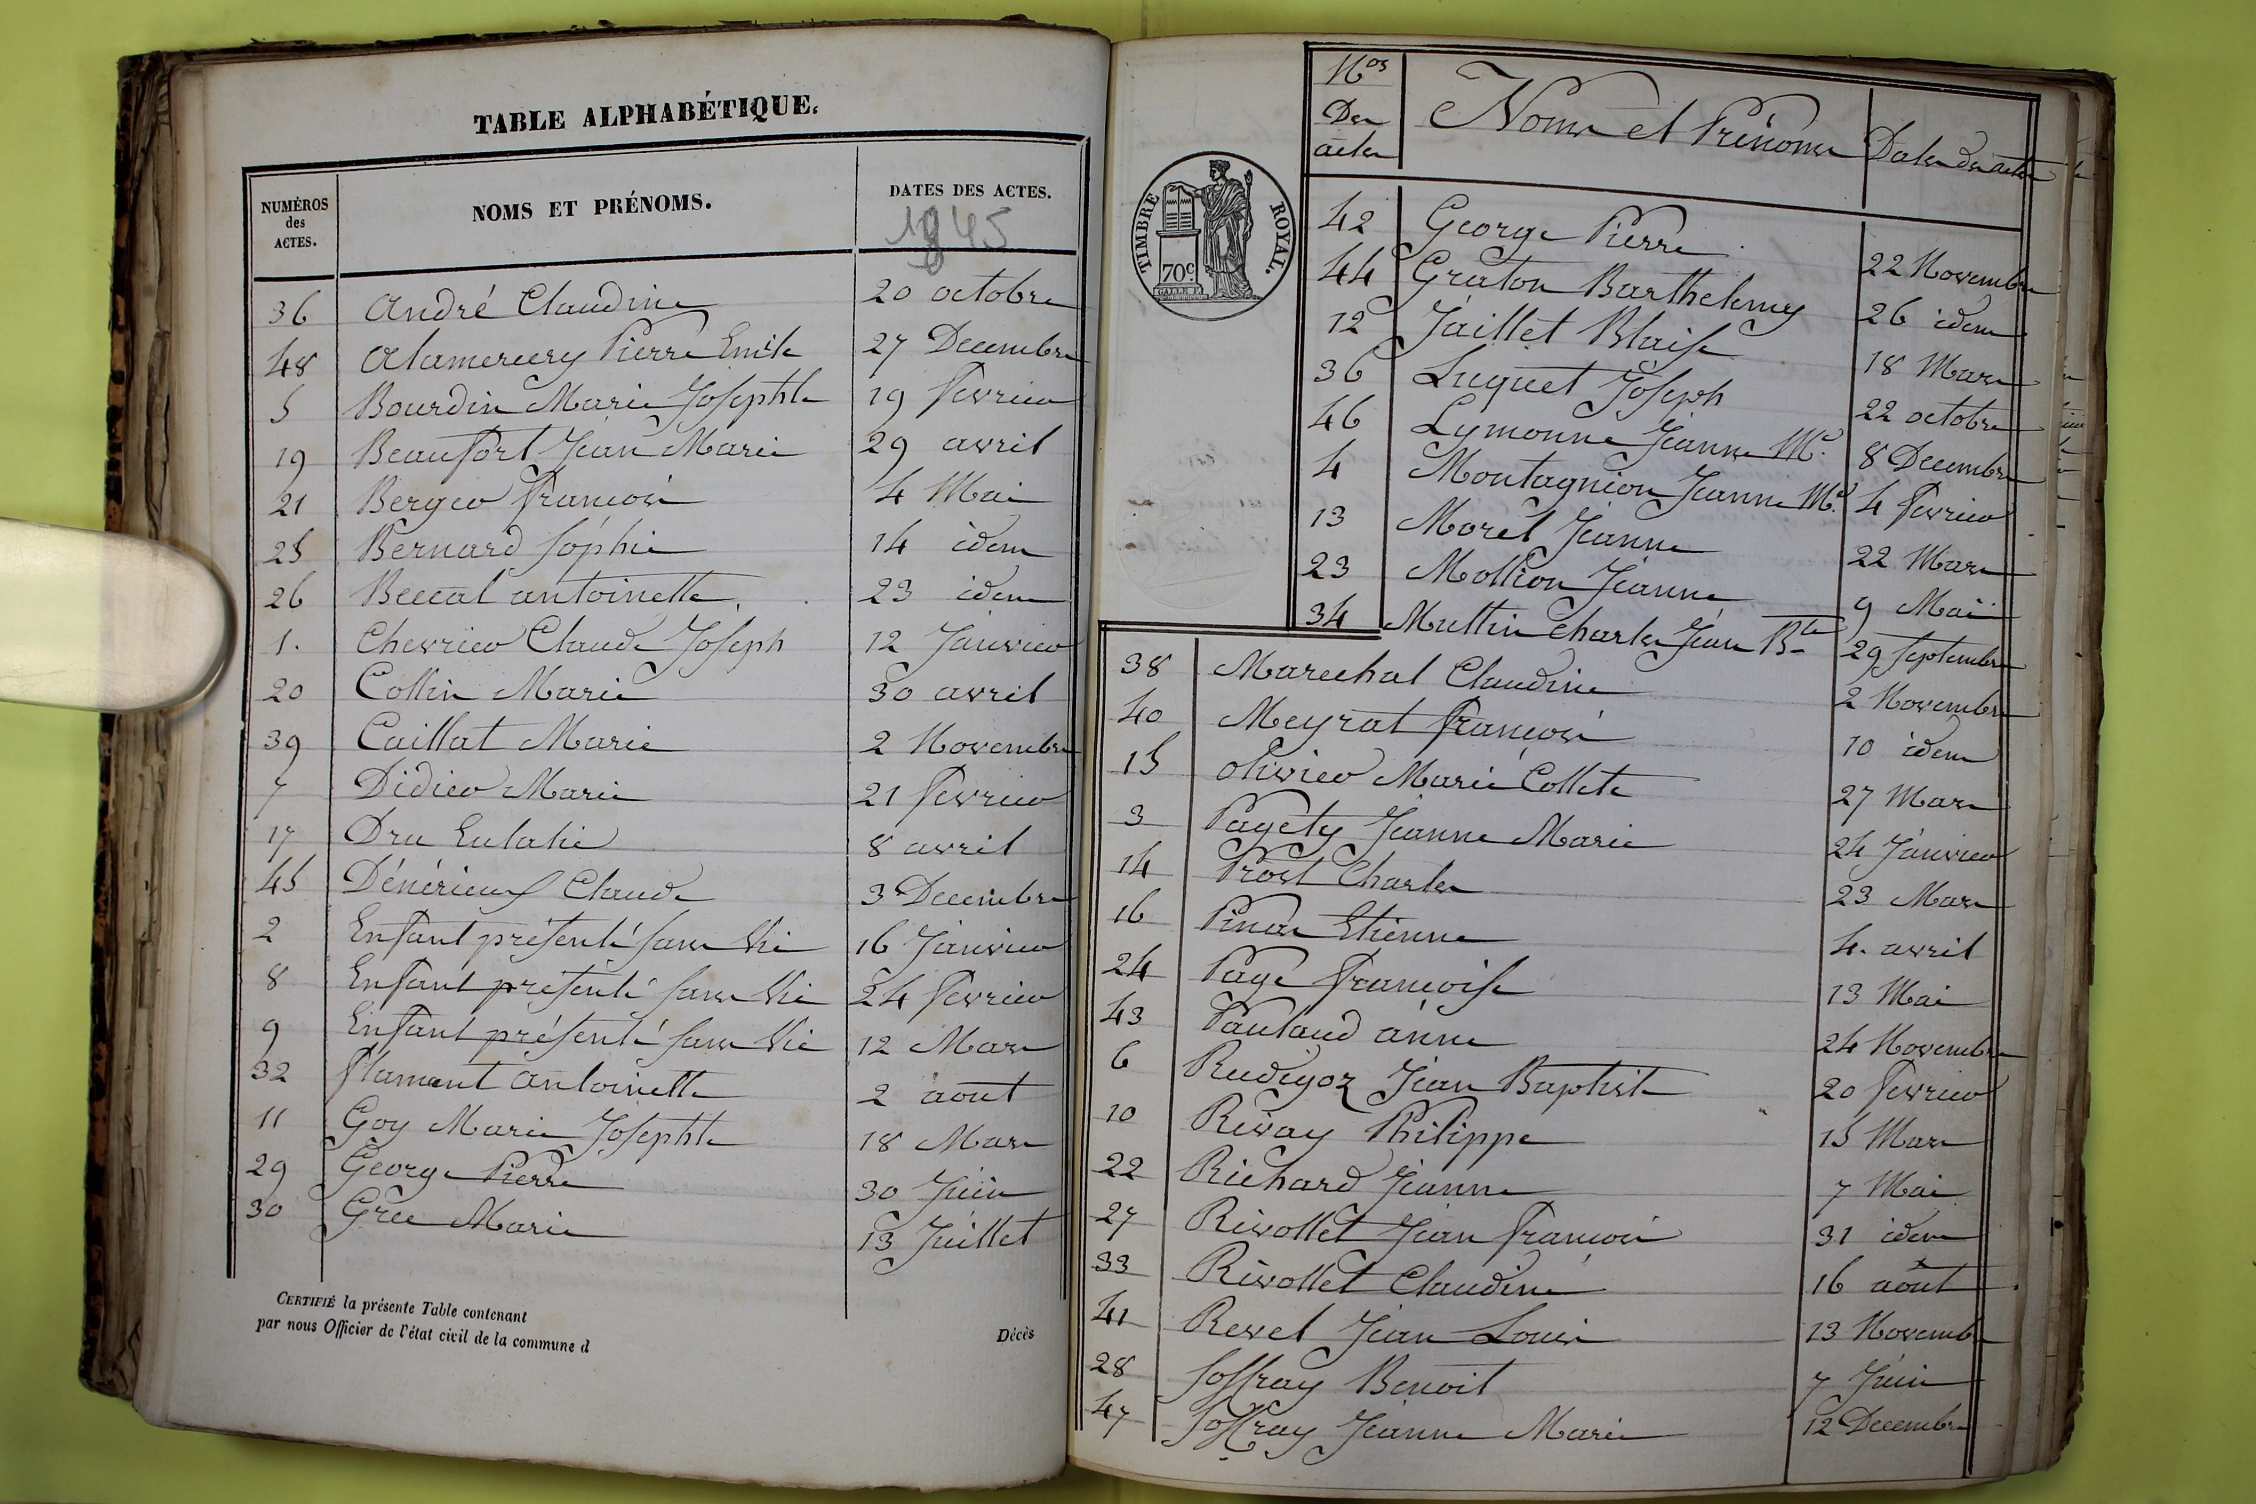 TABLE ALPHABÉTIQUE.
NUMÉROS des ACTES. NOMS ET PRÉNOMS. DATES DES ACTES.
1845
36 André Claudine 20 octobre
48 Alamercery Pierre Emile 27 Decembre
5 Bourdin Marie Josephte 19 fevrier
19 Beaufort Jean Marie 29 avril
21 Berger francois 4 Mai
25 Bernard Sophie 14 idem
26 Beccat antoinette 23 idem
1. Chevrier Claude Joseph 12 Janvier
20 Collin Marie 30 avril
39 Caillat Marie 2 Novembre
7 Didier Marie 21 fevrier
17 Dru Eulalie 8 avril
45 Dénérieux Claude 3 Decembre
2 Enfant présenté sans Vie 16 Janvier
8 Enfant présenté sans Vie 24 fevrier
9 Enfant présenté sans Vie 12 Mars
32 flamant antoinette 2 aout
11 Goy Marie Josephte 18 Mars
29 George Pierre 30 Juin
30 Gree Marie 13 Juillet
CERTIFIÉ la présente Table contenant
par nous Officier de l'état civil de la commune d
Décès
Nos Des actes Noms et Prénoms Dates des actes
TIMBRE ROYAL.
70c
42 George Pierre 22 Novembre
44 Graton Barthelemy 26 idem
12 Jaillet Blaise 18 Mars
36 Luquet Joseph 22 octobre
46 Lymonne Jeanne Me 8 Decembre
4 Montagnion Jeanne Me 4 fevrier
13 Morel Jeanne 22 Mars
23 Mollion Jeanne 9 Mai
34 Muttin Charles Jean Bte 29 Septembre
38 Marechal Claudine 2 Novembre
40 Meyrat francois 10 idem
15 olivier Marie Collete 27 Mars
3 Pagety Jeanne Marie 24 Janvier
14 Prost Charles 23 Mars
16 Etienne 4. avril
24 Page francoise 13 Mai
43 Paulaud anne 24 Novembre
6 Rudigoz Jean Baptiste 20 fevrier
10 Rivay Philippe 15 Mars
22 Richard Jeanne 7 Mai
27 Rivollet Jean francois 31 idem
33 Rivollet Claudine 16 août
41 Revel Jean Louis 13 Novembre
28 Soffray Benoit 7 Juin
47 Soffray Jeanne Marie 12 Decembre